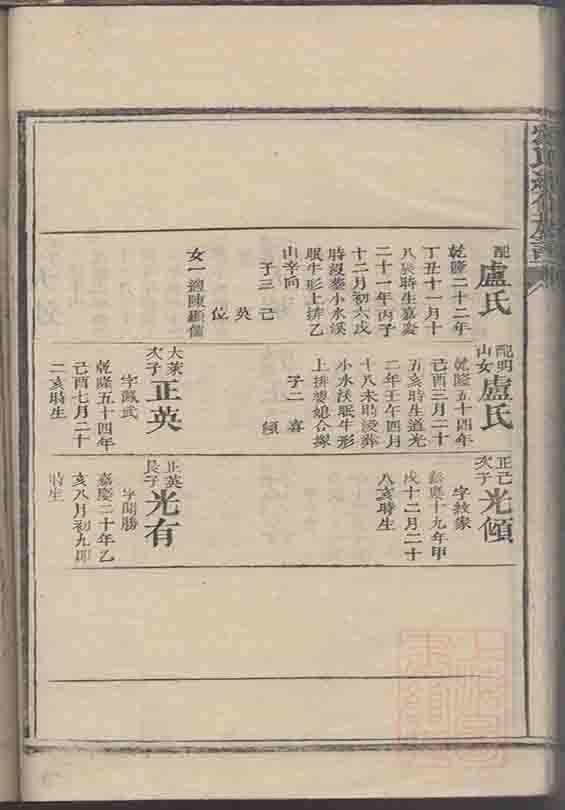 配
盧氏
乾隆二十二年
丁丑十一月十
八癸時生嘉慶
二十一年丙子
十二月初六戌
時沒葬小水溪
眠牛形上排乙
山辛向
子三 己
英
位
女一適陳顯儒
配明
山女
盧氏
乾隆五十四年
己酉三月二十
五亥時生道光
二年壬午四月
十八未時沒葬
小水沃眠牛形
上排婆媳合塚
子二 喜
傾
大萊
次子
正英
字殿武
乾隆五十四年
己酉七月二十
二亥時生
正己
次子
光傾
字敘家
嘉慶十九年甲
戌十二月二十
八亥時生
正英
長子
光有
字開勝
嘉慶二十年乙
亥八月初九卯
時生